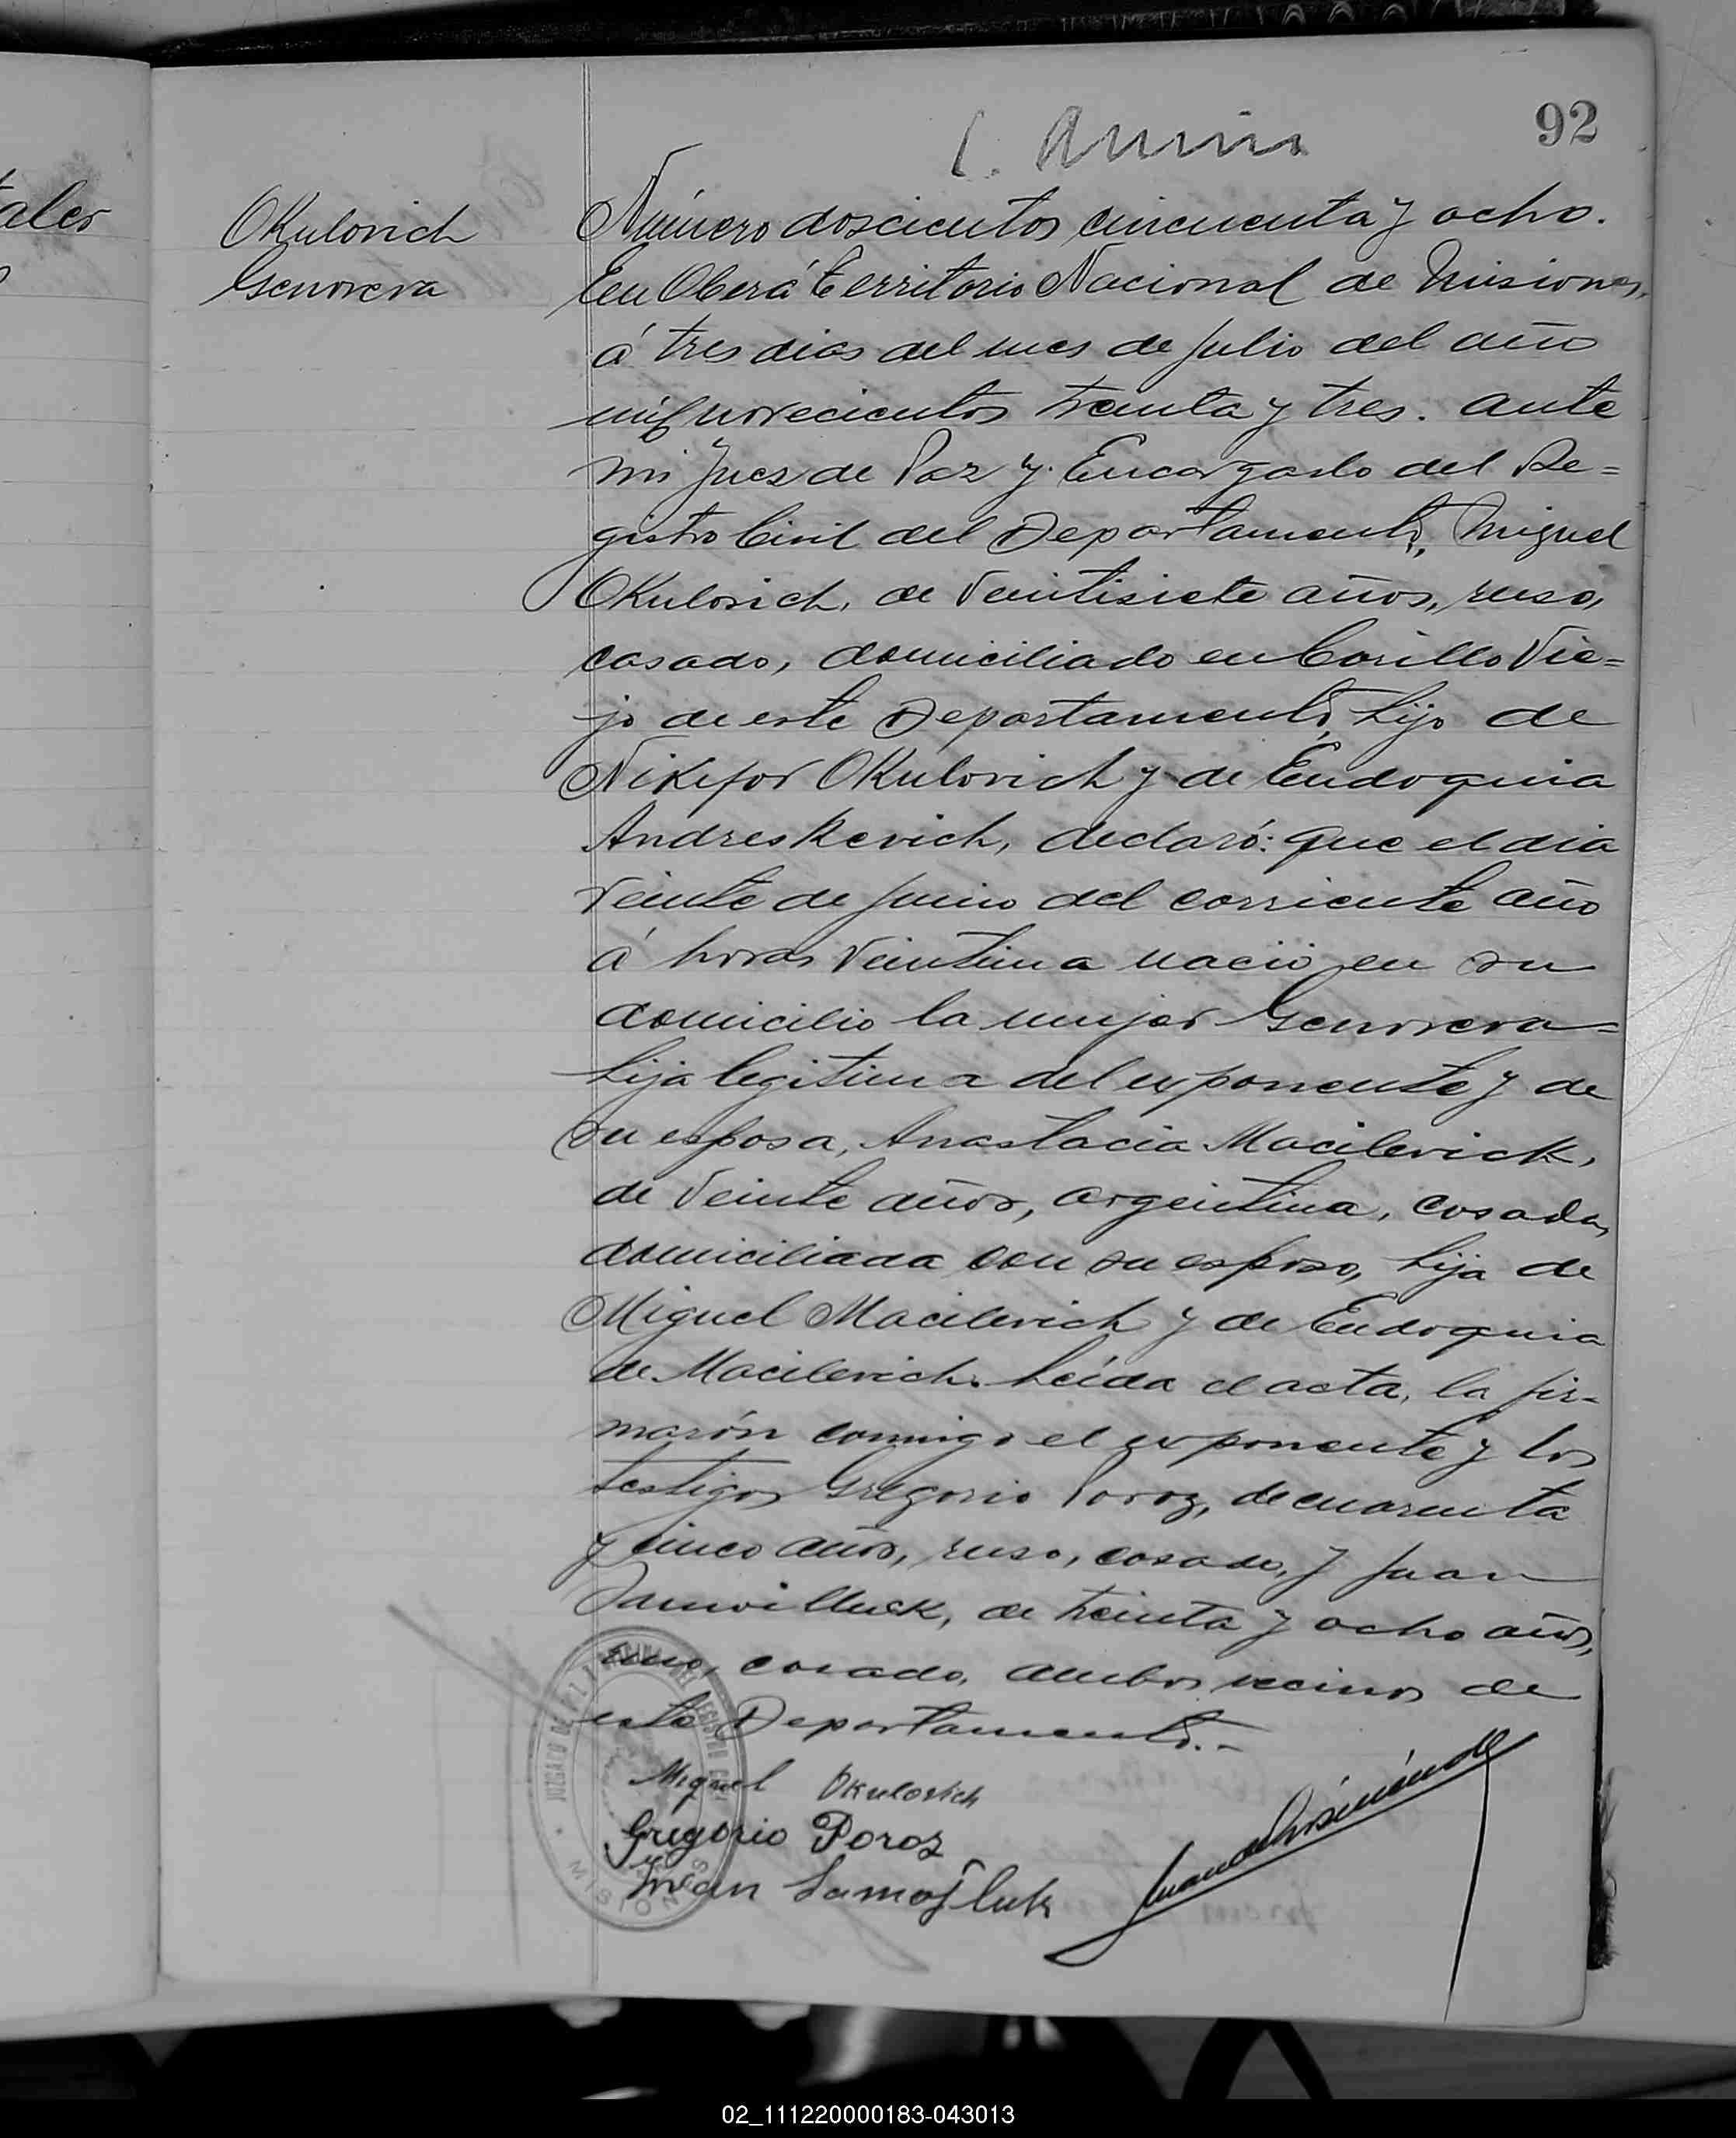 92
Okulovich
Genoveva
Número doscientos cincuenta y ocho.
En Oberá Territorio Nacional de Misiones,
á tres dias del mes de Julio del año
mil novecientos treinta y tres. ante
mi Juez de Paz y Encargado del Re=
gistro Civil del Departamento, Miguel
Okulovich, de veintisiete años, ruso,
casado, domiciliado en Cerillo Vie=
jo de este Departamento, hijo de
Nikifor Okulovich y de Eudoquia
Andreskevich, declaró: que el dia
veinte de Junio del corriente año
á horas veintiuna nació en su
domicilio la mujer Genoveva=
hija legitima del exponente y de
su esposa, Anastacia Macilevich,
de veinte años, argentina, casada,
domiciliada con su esposo, hija de
Miguel Macilevich y de Eudoquia
de Macilevich. Leída el acta, la fir=
marón conmigo el exponente y los
testigos Gregorio Poroz, de cuarenta
y cinco años, ruso, casado, y Juan
de treinta y ocho años,
ruso, casado, ambos vecinos de
este Departamento.-
Miguel Okulovich
Gregorio Poroz
JUZGADO DE PAZ
REGISTRO CIVIL
MISIONES
02_111220000183-043013